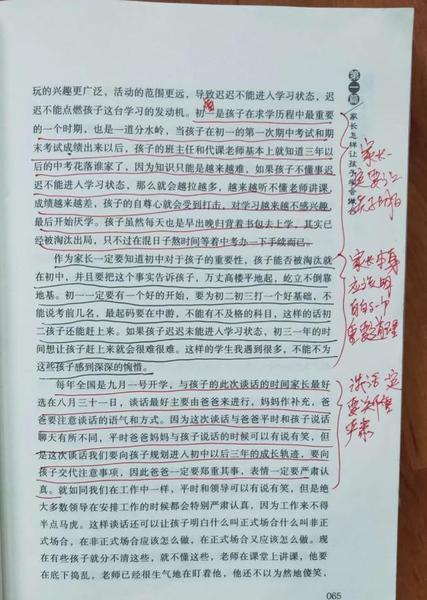 玩的兴趣更广泛，活动的范围更远，导致迟迟不能进入学习状态，迟
迟不能点燃孩子这台学习的发动机。初一是孩子在求学历程中最重要
的一个时期，也是一道分水岭，当孩子在初一的第一次期中考试和期
末考试成绩出来以后，孩子的班主任和代课老师基本上就知道三年以
后的中考花落谁家了，因为知识只能是越来越难，如果孩子不懂事迟
迟不能进入学习状态，那么就会越拉越多，越来越听不懂老师讲课，
成绩越来越差，孩子的自尊心就会受到打击，对学习越来越不感兴趣，
最后开始厌学。孩子虽然每天也是早出晚归背着书包去上学，其实已
经被淘汰出局，只不过在混日子熬时间等着中考办一下手续而已。
作为家长一定要知道初中对于孩子的重要性，孩子能否被淘汰就
在初中，并且要把这个事实告诉孩子，万丈高楼平地起，屹立不倒靠
地基。初一一定要有一个好的开始，要为初二初三打一个好基础，不
能说考前几名，最起码要在中游，不能有不及格的科目，这样的话初
二孩子还能赶上来。如果孩子迟迟未能进入学习状态，初三一年的时
间想让孩子赶上来就会很难很难。这样的学生我遇到很多，不能不为
这些孩子感到深深的惋惜。
每年全国是九月一号开学，与孩子的此次谈话的时间家长最好
选在八月三十一日，谈话最好主要由爸爸来进行，妈妈作补充，爸
爸要注意谈话的语气和方式。因为这次谈话与爸爸平时和孩子说话
聊天有所不同，平时爸爸妈妈与孩子说话的时候可以有说有笑，但
是这次谈话我们要向孩子规划进入初中以后三年的成长轨迹，要向
孩子交代注意事项，因此爸爸一定要郑重其事，表情一定要严肃认
真。就如同我们在工作中一样，平时和领导可以有说有笑，但是绝
大多数领导在安排工作的时候都会特别严肃认真，因为工作来不得
半点马虎。这样谈话还可以让孩子明白什么叫正式场合什么叫非正
式场合，在非正式场合应该怎么做，在正式场合又应该怎么做。现
在有些孩子就分不清这些，就不懂这些，老师在课堂上讲课，他要
在底下捣乱。老师已经很生气地在盯着他，他还不以为然地傻笑，
065
第一篇
家长怎样让孩子学会
家长一
定要让
孩子明白
家长本身
应该明
白的一个
重要道理
谈话一定
要郑重
严肃